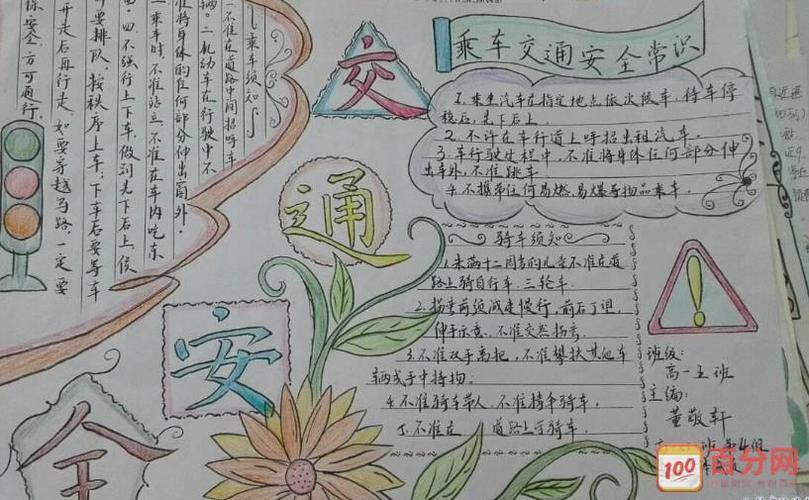 交
通
安
全
乘车交通安全常识
1.乘坐汽车在指定地点依次候车,待车停
稳后,先下后上。
2.不许在车行道上呼招出租汽车。
3.车行驶过程中,不准将身体任何部分伸
出车外,不准跳车
4.不携带任何易燃、易爆等物品乘车.
骑车须知
1.未满十二周岁的儿童不准在道
路上骑自行车、三轮车.
2.拐弯前须减速慢行,前后了望,
伸手示意,不准突然拐弯
3.不准双手离把,不准攀扶其他车
辆或手中持物.
4.不准骑车带人,不准撑伞骑车.
5.不准在 道路上学骑车.
班级:
高一五班
主编:
董敬轩
乘车须知
一.不准在道路中间招呼车
辆。二.机动车在行驶中不
准将身体的任何部分伸出窗外.
三.乘车时,不准站立,不准在车内吃东
西.四.不强行上下车,做到先下后上,候
车要排队,按秩序上车;下车后要等车
开走后再行走,如要穿越马路,一定要
保安全,方可通行.
100
百分网